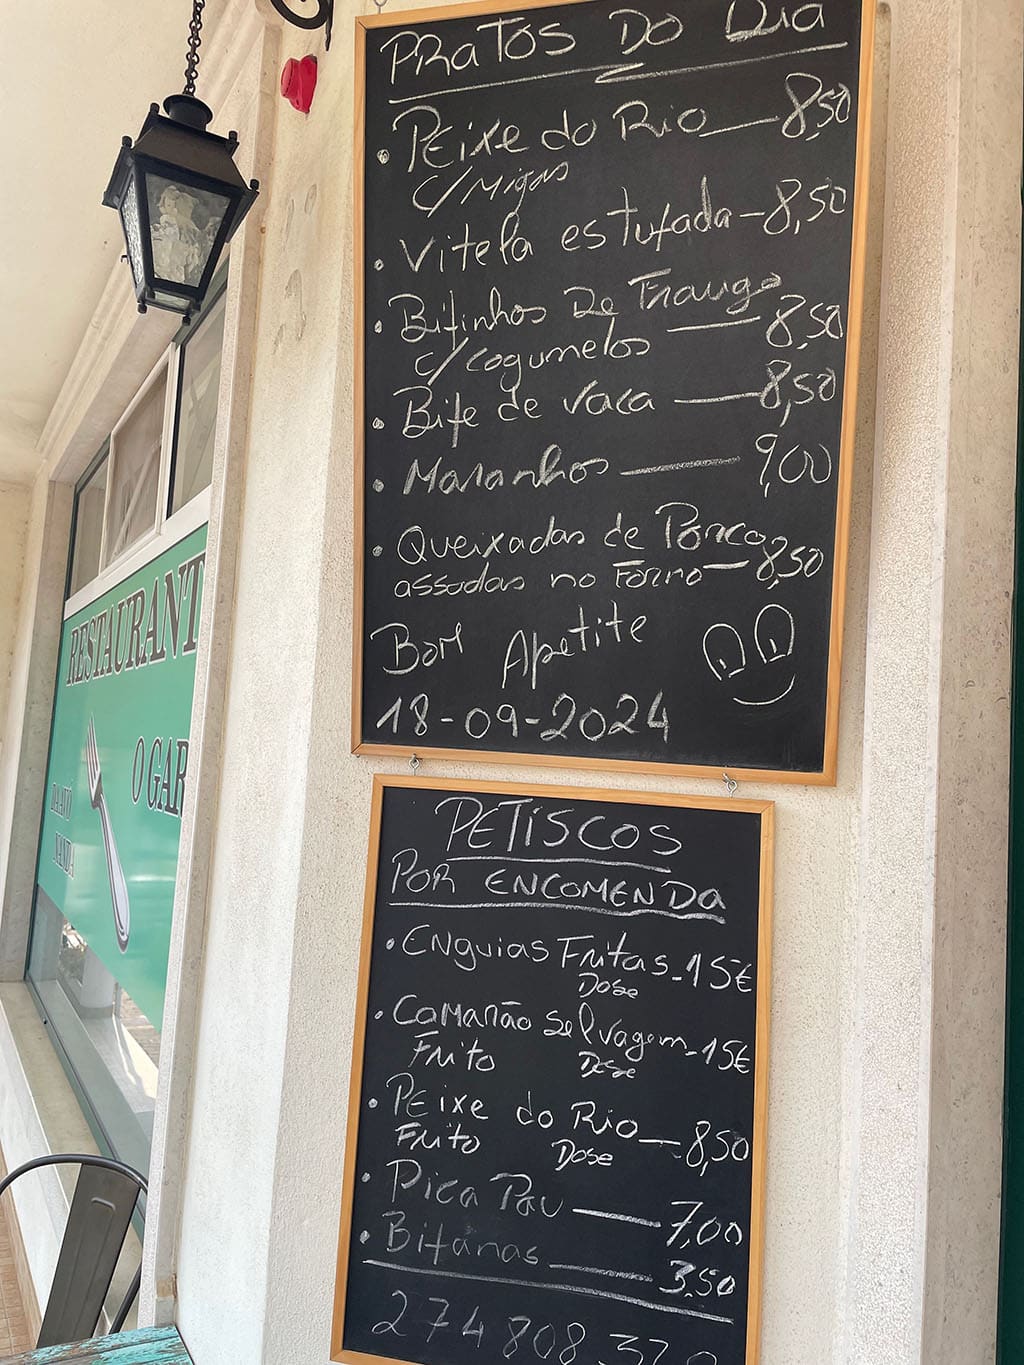 PRATOS DO DIA
• PEixe do Rio — 8,50
c/Migas
• Vitela estufada - 8,50
• Bifinhos De Frango
c/cogumelos — 8,50
• Bife de vaca — 8,50
• Maranhos — 9,00
• Queixadas de Porco
assadas no Forno — 8,50
Bom Apetite
18-09-2024
PETISCOS
POR ENCOMENDA
• ENguias Fritas - 15€
Dose
• Camarão Selvagem - 15€
Frito Dose
• PEixe do Rio — 8,50
Frito Dose
• Pica Pau — 7,00
• Bifanas — 3,50
274 808
RESTAURANT
O GAR